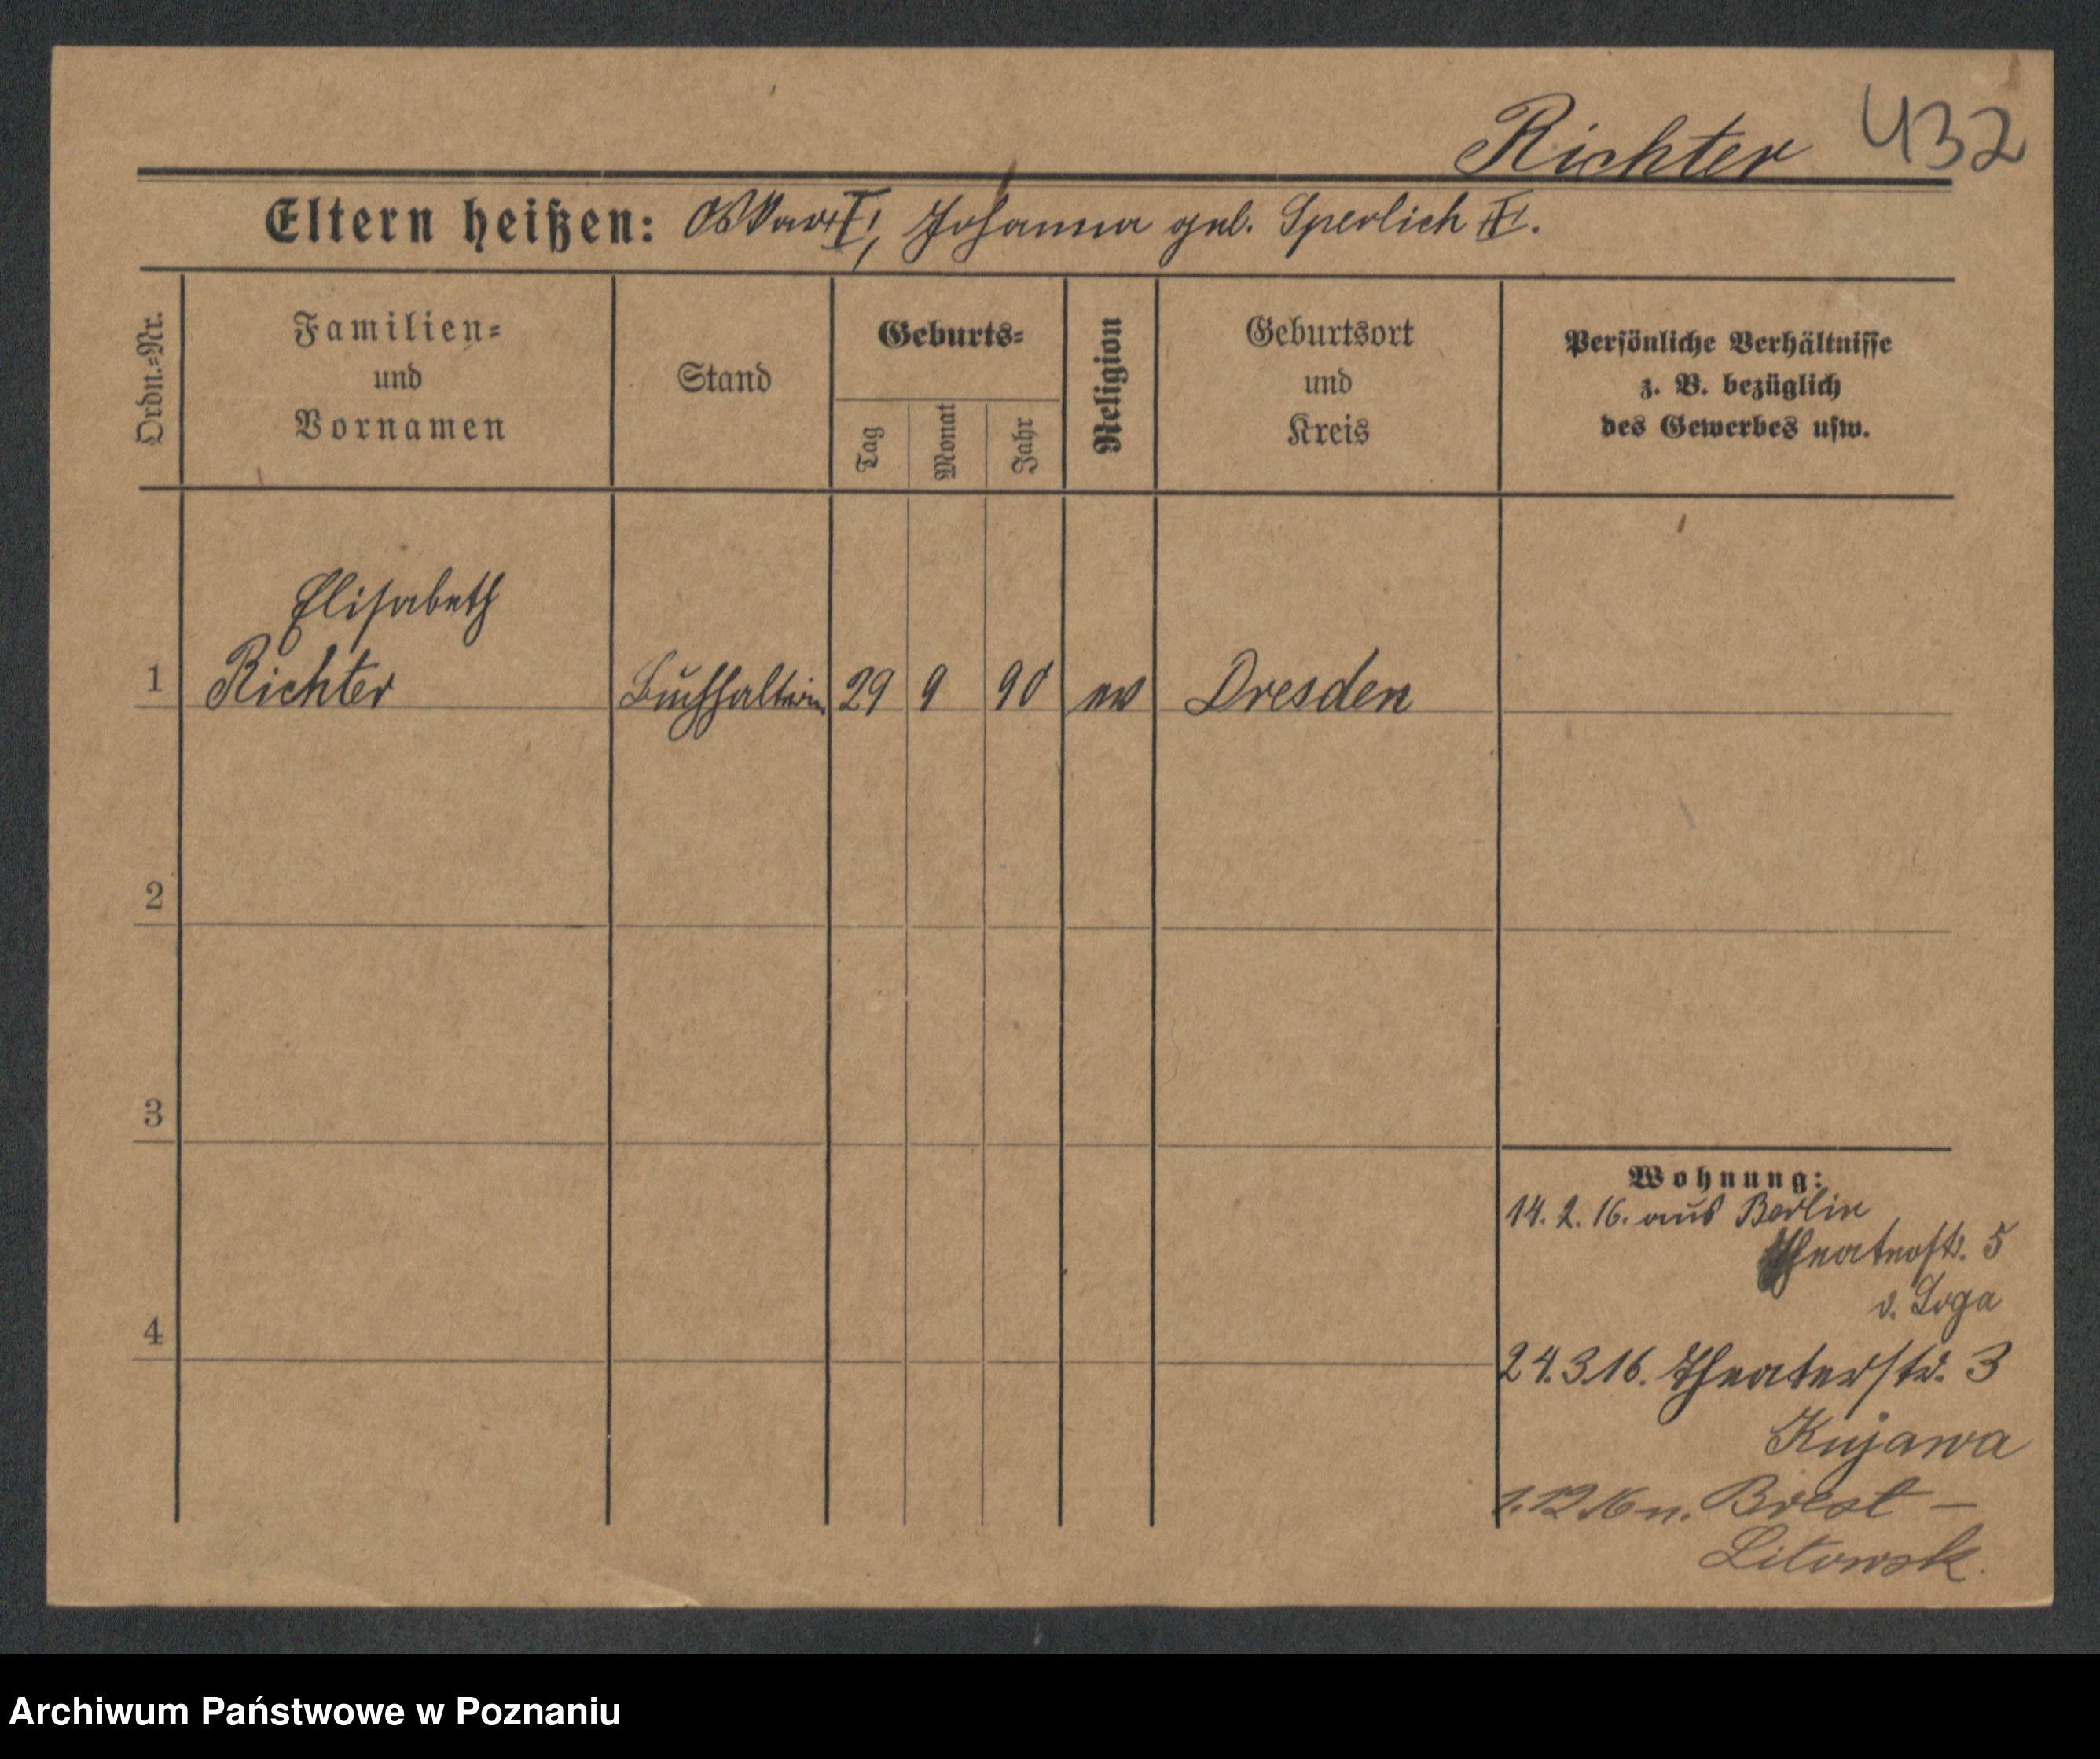 Richter 432
Eltern heißen: Oskar †, Johanna geb. Sperlich †.
Ordn.=Nr.
Familien=
und
Vornamen
Stand
Geburts=
Tag
Monat
Jahr
Religion
Geburtsort
und
Kreis
Persönliche Verhältnisse
z. B. bezüglich
des Gewerbes usw.
Elisabeth
1 Richter Buchhalterin 29 9 90 ev Dresden
2
3
4
Wohnung:
14. 2. 16. aus Berlin
Theaterstr. 5
v. Loga
24.3.16. Theaterstr. 3
Kujawa
1.12.16 n. Brest –
Litowsk.
Archiwum Państwowe w Poznaniu